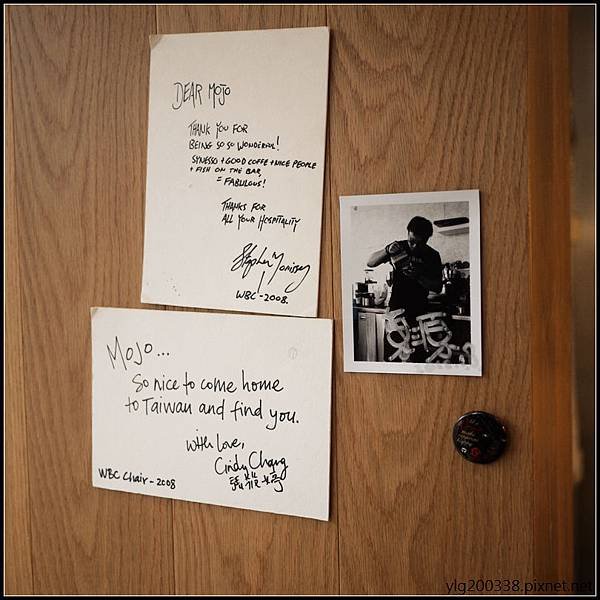 DEAR MOJO
THANK YOU FOR
BEING SO SO WONDERFUL!
SYNESSO + GOOD COFFE + NICE PEOPLE
+ FISH ON THE BAR,
= FABULOUS!
THANKS FOR
ALL YOUR HOSPITALITY
Stephen Morrissey
WBC - 2008.
MOJO...
So nice to come home
to Taiwan and find you.
with Love,
Cindy Chang
WBC Chair - 2008
ylg200338.pixnet.net